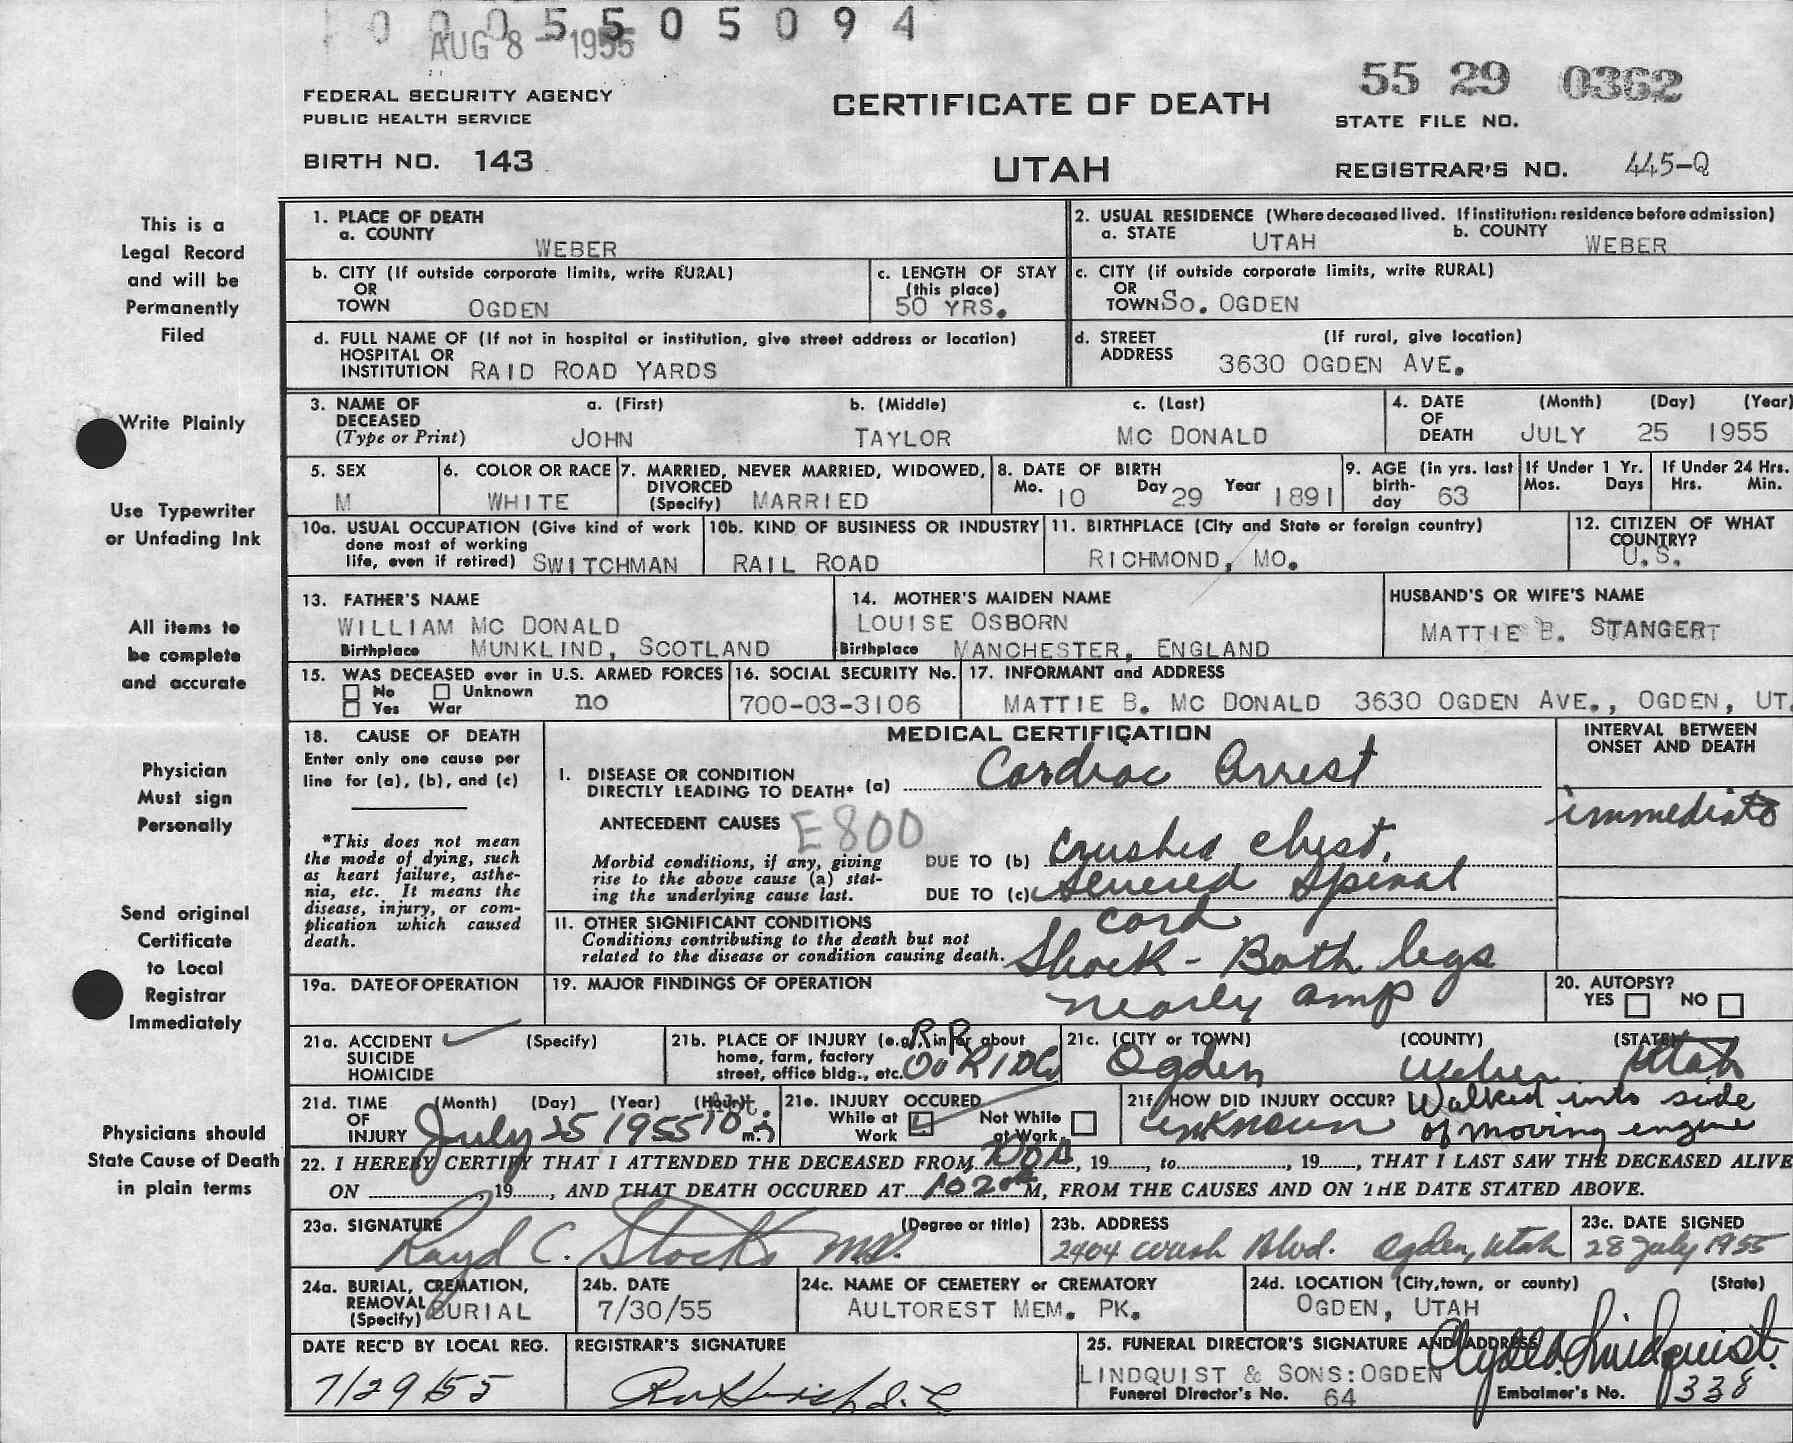 0005505094
AUG 8 - 1955
55 29 0362
FEDERAL SECURITY AGENCY
PUBLIC HEALTH SERVICE
CERTIFICATE OF DEATH
STATE FILE NO.
BIRTH NO. 143
UTAH
REGISTRAR'S NO. 445-Q
This is a
Legal Record
and will be
Permanently
Filed
Write Plainly
Use Typewriter
or Unfading Ink
All items to
be complete
and accurate
Physician
Must sign
Personally
Send original
Certificate
to Local
Registrar
Immediately
Physicians should
State Cause of Death
in plain terms
1. PLACE OF DEATH
a. COUNTY WEBER
2. USUAL RESIDENCE (Where deceased lived. If institution: residence before admission)
a. STATE UTAH b. COUNTY WEBER
b. CITY (If outside corporate limits, write RURAL)
OR
TOWN OGDEN
c. LENGTH OF STAY
(this place)
50 YRS.
c. CITY (if outside corporate limits, write RURAL)
OR
TOWN SO. OGDEN
d. FULL NAME OF (If not in hospital or institution, give street address or location)
HOSPITAL OR
INSTITUTION RAID ROAD YARDS
d. STREET (If rural, give location)
ADDRESS 3630 OGDEN AVE.
3. NAME OF a. (First) b. (Middle) c. (Last)
DECEASED
(Type or Print) JOHN TAYLOR MC DONALD
4. DATE (Month) (Day) (Year)
OF
DEATH JULY 25 1955
5. SEX
M
6. COLOR OR RACE
WHITE
7. MARRIED, NEVER MARRIED, WIDOWED,
DIVORCED
(Specify) MARRIED
8. DATE OF BIRTH
Mo. 10 Day 29 Year 1891
9. AGE (in yrs. last
birth-
day 63
If Under 1 Yr.
Mos. Days
If Under 24 Hrs.
Hrs. Min.
10a. USUAL OCCUPATION (Give kind of work
done most of working
life, even if retired) SWITCHMAN
10b. KIND OF BUSINESS OR INDUSTRY
RAIL ROAD
11. BIRTHPLACE (City and State or foreign country)
RICHMOND, MO.
12. CITIZEN OF WHAT
COUNTRY?
U.S.
13. FATHER'S NAME
WILLIAM MC DONALD
Birthplace MUNKLIND, SCOTLAND
14. MOTHER'S MAIDEN NAME
LOUISE OSBORN
Birthplace MANCHESTER, ENGLAND
HUSBAND'S OR WIFE'S NAME
MATTIE B. STANGERT
15. WAS DECEASED ever in U.S. ARMED FORCES
No Unknown
Yes War
no
16. SOCIAL SECURITY No.
700-03-3106
17. INFORMANT and ADDRESS
MATTIE B. MC DONALD 3630 OGDEN AVE., OGDEN, UT.
18. CAUSE OF DEATH
Enter only one cause per
line for (a), (b), and (c)
*This does not mean
the mode of dying, such
as heart failure, asthe-
nia, etc. It means the
disease, injury, or com-
plication which caused
death.
MEDICAL CERTIFICATION
INTERVAL BETWEEN
ONSET AND DEATH
I. DISEASE OR CONDITION
DIRECTLY LEADING TO DEATH* (a) Cardiac Arrest
immediate
ANTECEDENT CAUSES E800
Morbid conditions, if any, giving
rise to the above cause (a) stat-
ing the underlying cause last.
DUE TO (b) Crushed chest,
DUE TO (c) Severed spinal
cord
II. OTHER SIGNIFICANT CONDITIONS
Conditions contributing to the death but not
related to the disease or condition causing death.
Shock - Both legs
nearly amp
19a. DATE OF OPERATION
19. MAJOR FINDINGS OF OPERATION
20. AUTOPSY?
YES NO
21a. ACCIDENT (Specify)
SUICIDE
HOMICIDE
21b. PLACE OF INJURY (e.g., in or about
home, farm, factory
street, office bldg., etc.
RR
21c. (CITY or TOWN) (COUNTY) (STATE)
Ogden Weber Utah
21d. TIME (Month) (Day) (Year) (Hour)
OF
INJURY July 25 1955 10 m.
21e. INJURY OCCURED
While at Not While
Work at Work
21f. HOW DID INJURY OCCUR? Walked into side
unknown of moving engine
22. I HEREBY CERTIFY THAT I ATTENDED THE DECEASED FROM DOA, 19, to, 19, THAT I LAST SAW THE DECEASED ALIVE
ON, 19, AND THAT DEATH OCCURED AT 1020 M, FROM THE CAUSES AND ON THE DATE STATED ABOVE.
23a. SIGNATURE (Degree or title)
C. Stocks M.D.
23b. ADDRESS
2404 Wash Blvd. Ogden, Utah
23c. DATE SIGNED
28 July 1955
24a. BURIAL, CREMATION,
REMOVAL
(Specify) BURIAL
24b. DATE
7/30/55
24c. NAME OF CEMETERY or CREMATORY
AULTOREST MEM. PK.
24d. LOCATION (City, town, or county) (State)
OGDEN, UTAH
DATE REC'D BY LOCAL REG.
7/29/55
REGISTRAR'S SIGNATURE
25. FUNERAL DIRECTOR'S SIGNATURE AND ADDRESS
Lindquist
LINDQUIST & SONS: OGDEN
Funeral Director's No. 64
Embalmer's No. 338